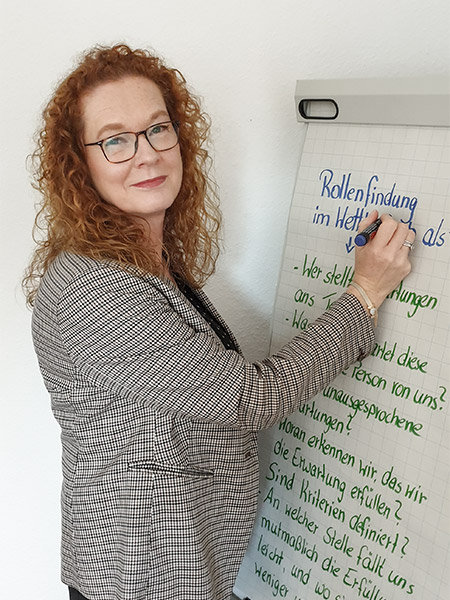 Rollenfindung
im als
- Wer
ans
- diese
Person von uns?
unausgesprochene
Woran erkennen wir, das wir
die Erwartung erfüllen?
Sind Kriterien definiert?
- An welcher Stelle fällt uns
mutmaßlich die
leicht, und wo
weniger